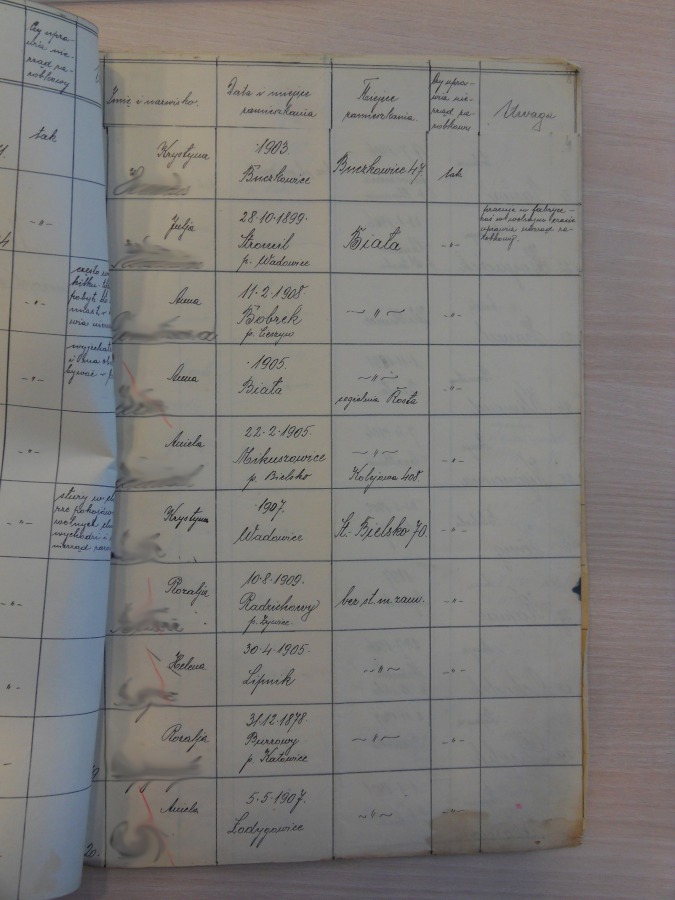 Czy upra-
wia nie-
rząd za-
robkowy
tak
-"-
-"-
-"-
-"-
-"-
-"-
-"-
-"-
często w
pobyt
bywać -
wolnych
wychodzi i
nierząd zaro
20.
Imię i nazwisko. Data i miejsce zamieszkania Miejsce zamieszkania. Czy upra-wia nie-rząd za-robkowy Uwaga
Krystyna 1903. Buczkowice Buczkowice 47. tak
Julja 28.10.1899. Stronie p. Wadowice Biała -"- pracuje w fabryce - w wolnym czasie uprawia nierząd za-robkowy.
Anna 11.2.1908. Bobrek p. Cieszyn ~"~ -"-
Anna 1905. Biała ~"~ cegielnia Rosta -"-
Aniela 22.2.1905. Mikuszowice p. Bielsko ~"~ Kolejowa 408 -"-
Krystyna 1907. Wadowice St. Bielsko 70. -"-
Rozalja 10.8.1909. Radziechowy p. Żywiec bez st. m. zam. -"-
Helena 30.4.1905. Lipnik ~"~ -"-
Rozalja 31.12.1878. p. Katowice ~"~ -"-
Aniela 5.5.1907. Łodygowice ~"~ -"-